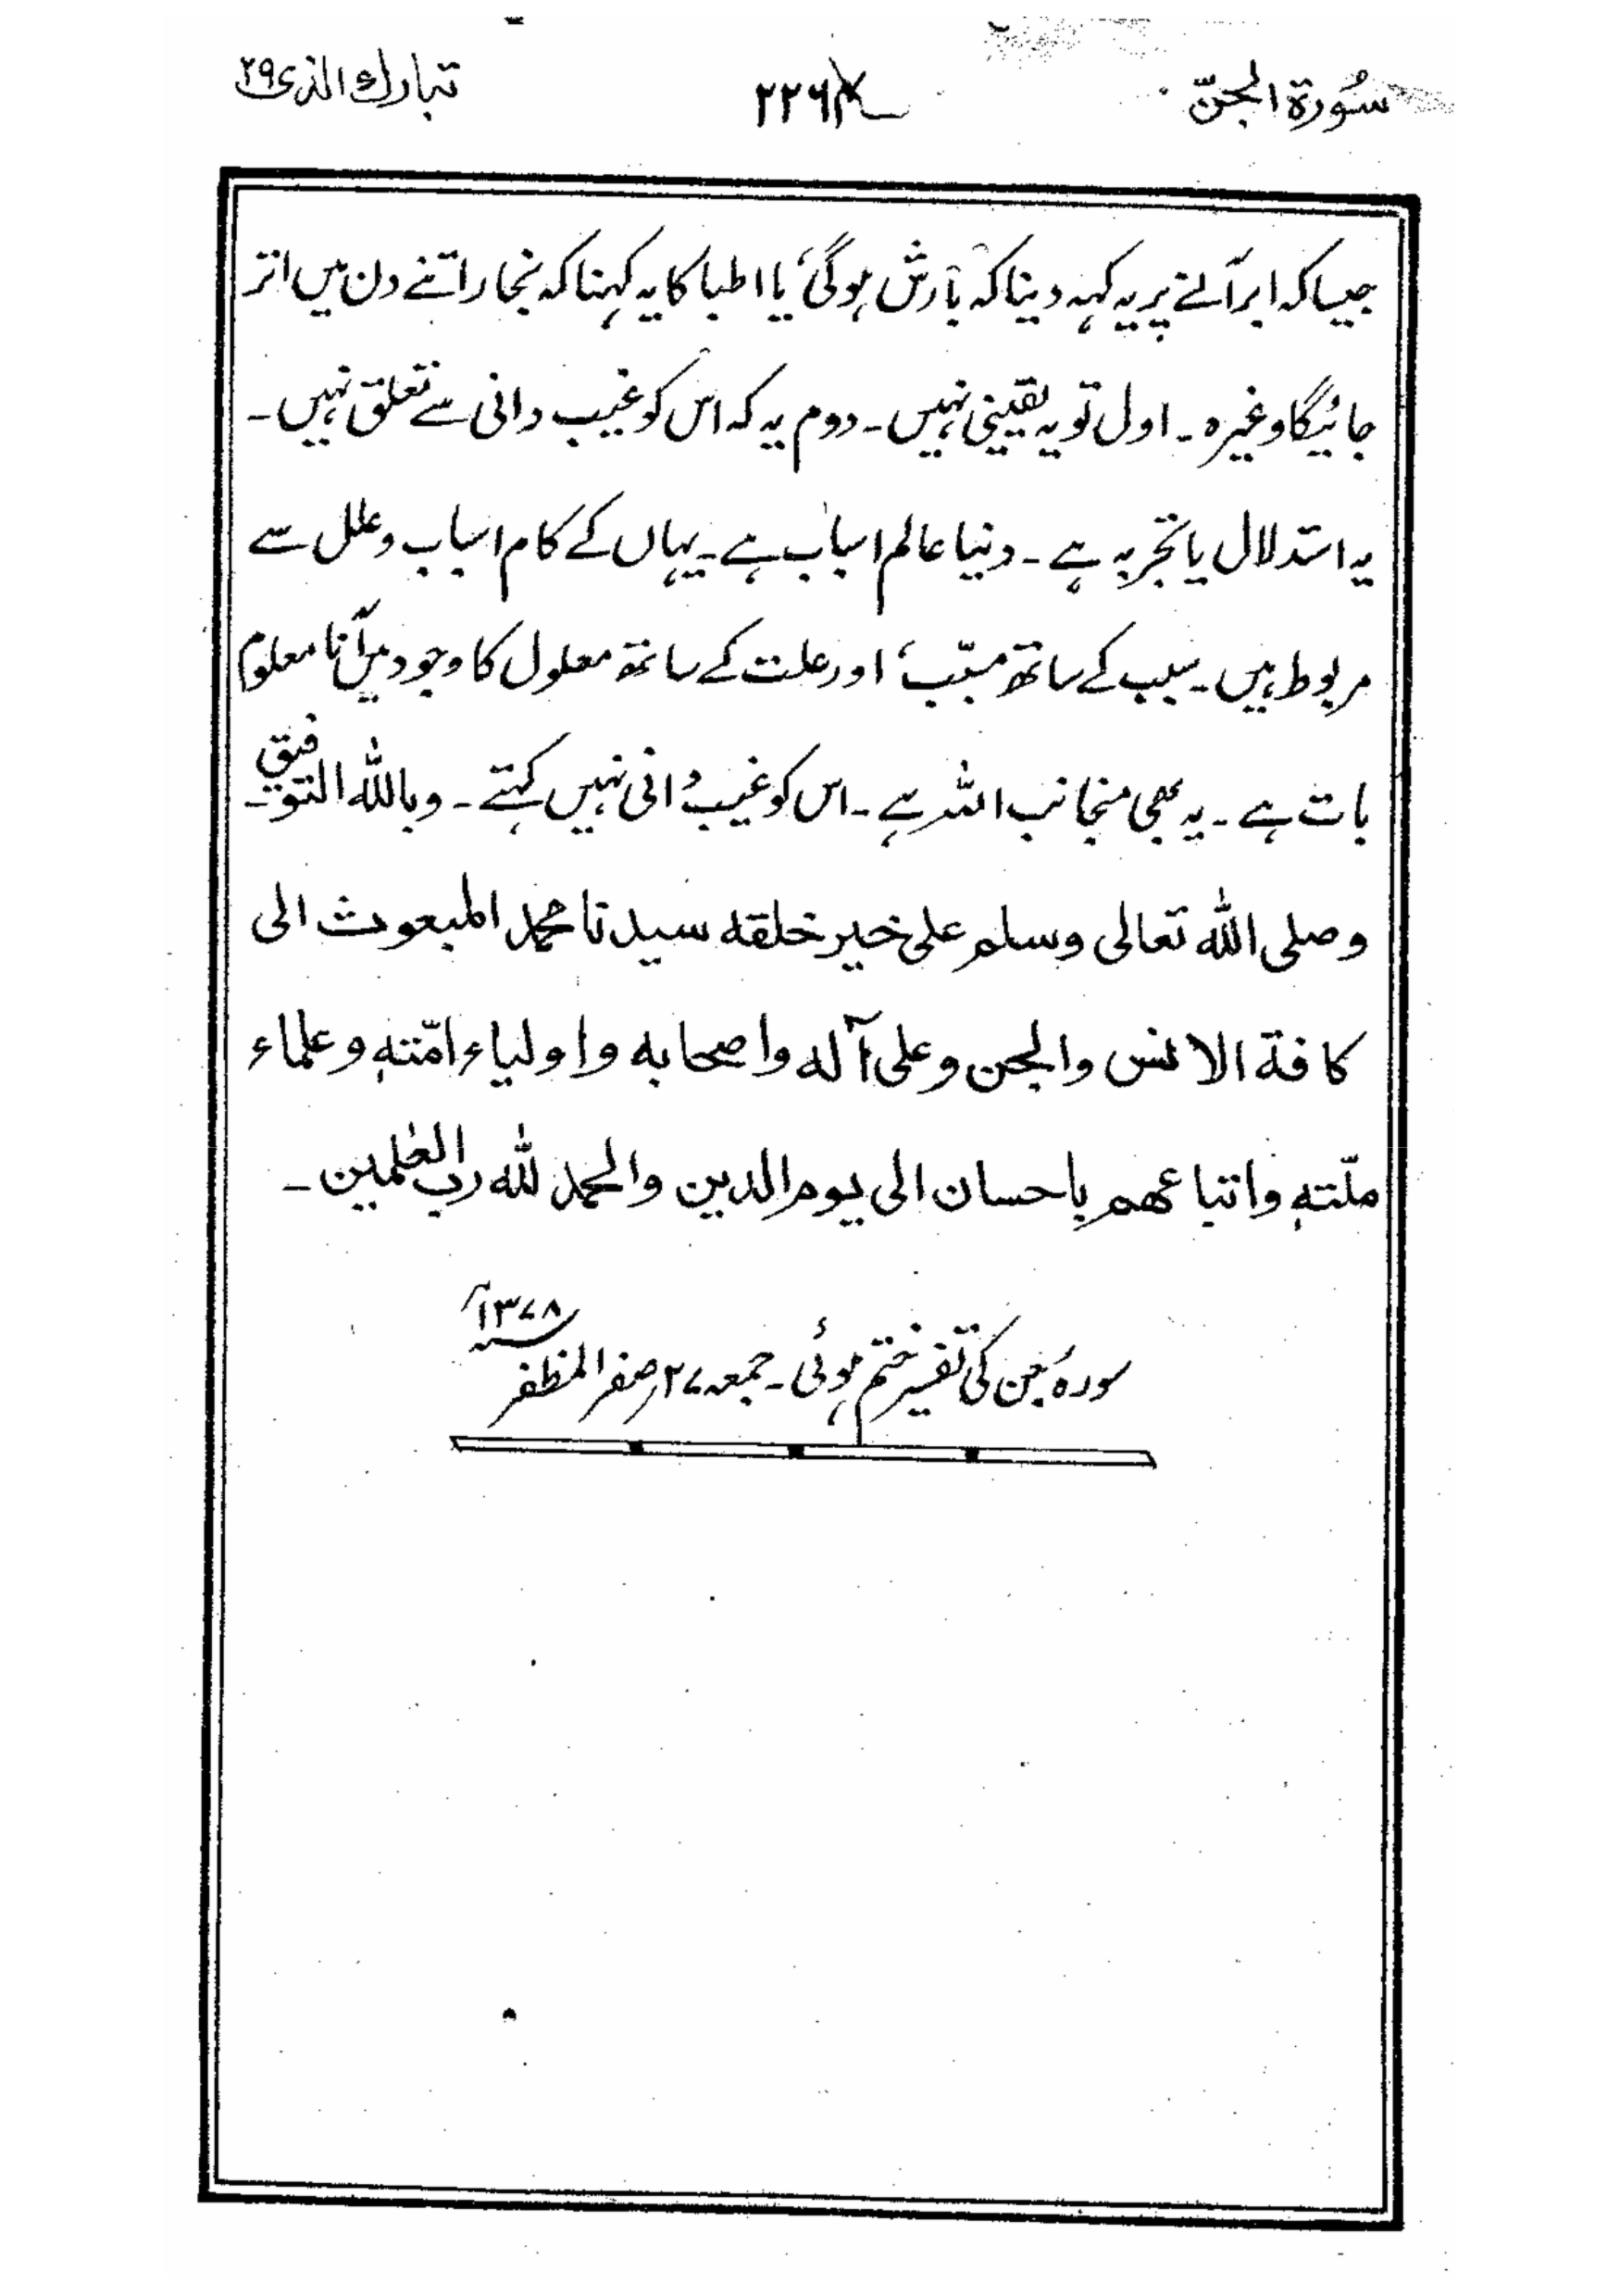 سُورة الجنّ ۲۲۶ تبارك الذی ۲۹
جیسا کہ ابر آنے پر یہ کہہ دینا کہ بارش ہوگی یا اطبا کا یہ کہنا کہ بخار اتنے دن میں اتر
جائیگا وغیرہ ۔ اول تو یہ یقینی نہیں ۔ دوم یہ کہ اس کو غیب دانی سے تعلق نہیں ۔
یہ استدلال یا تجربہ ہے ۔ دنیا عالم اسباب ہے ۔ یہاں کے کام اسباب و علل سے
مربوط ہیں ۔ سبب کے ساتھ مسبّب، اور علت کے ساتھ معلول کا وجود میں آنا معلوم
بات ہے ۔ یہ بھی منجانب اللہ ہے ۔ اس کو غیب دانی نہیں کہتے ۔ وبالله التوفيق ۔
وصلى الله تعالى وسلم على خير خلقه سيدنا محمد المبعوث الى
كافة الانس والجن وعلى آله واصحابه واولياء امّته وعلماء
ملّته واتباعهم باحسان الى يوم الدين والحمد لله رب العٰلمين ۔
سورۂ جن کی تفسیر ختم ہوئی ۔ جمعہ ۲۷؍ صفر المظفر ۱۳۷۸ھ